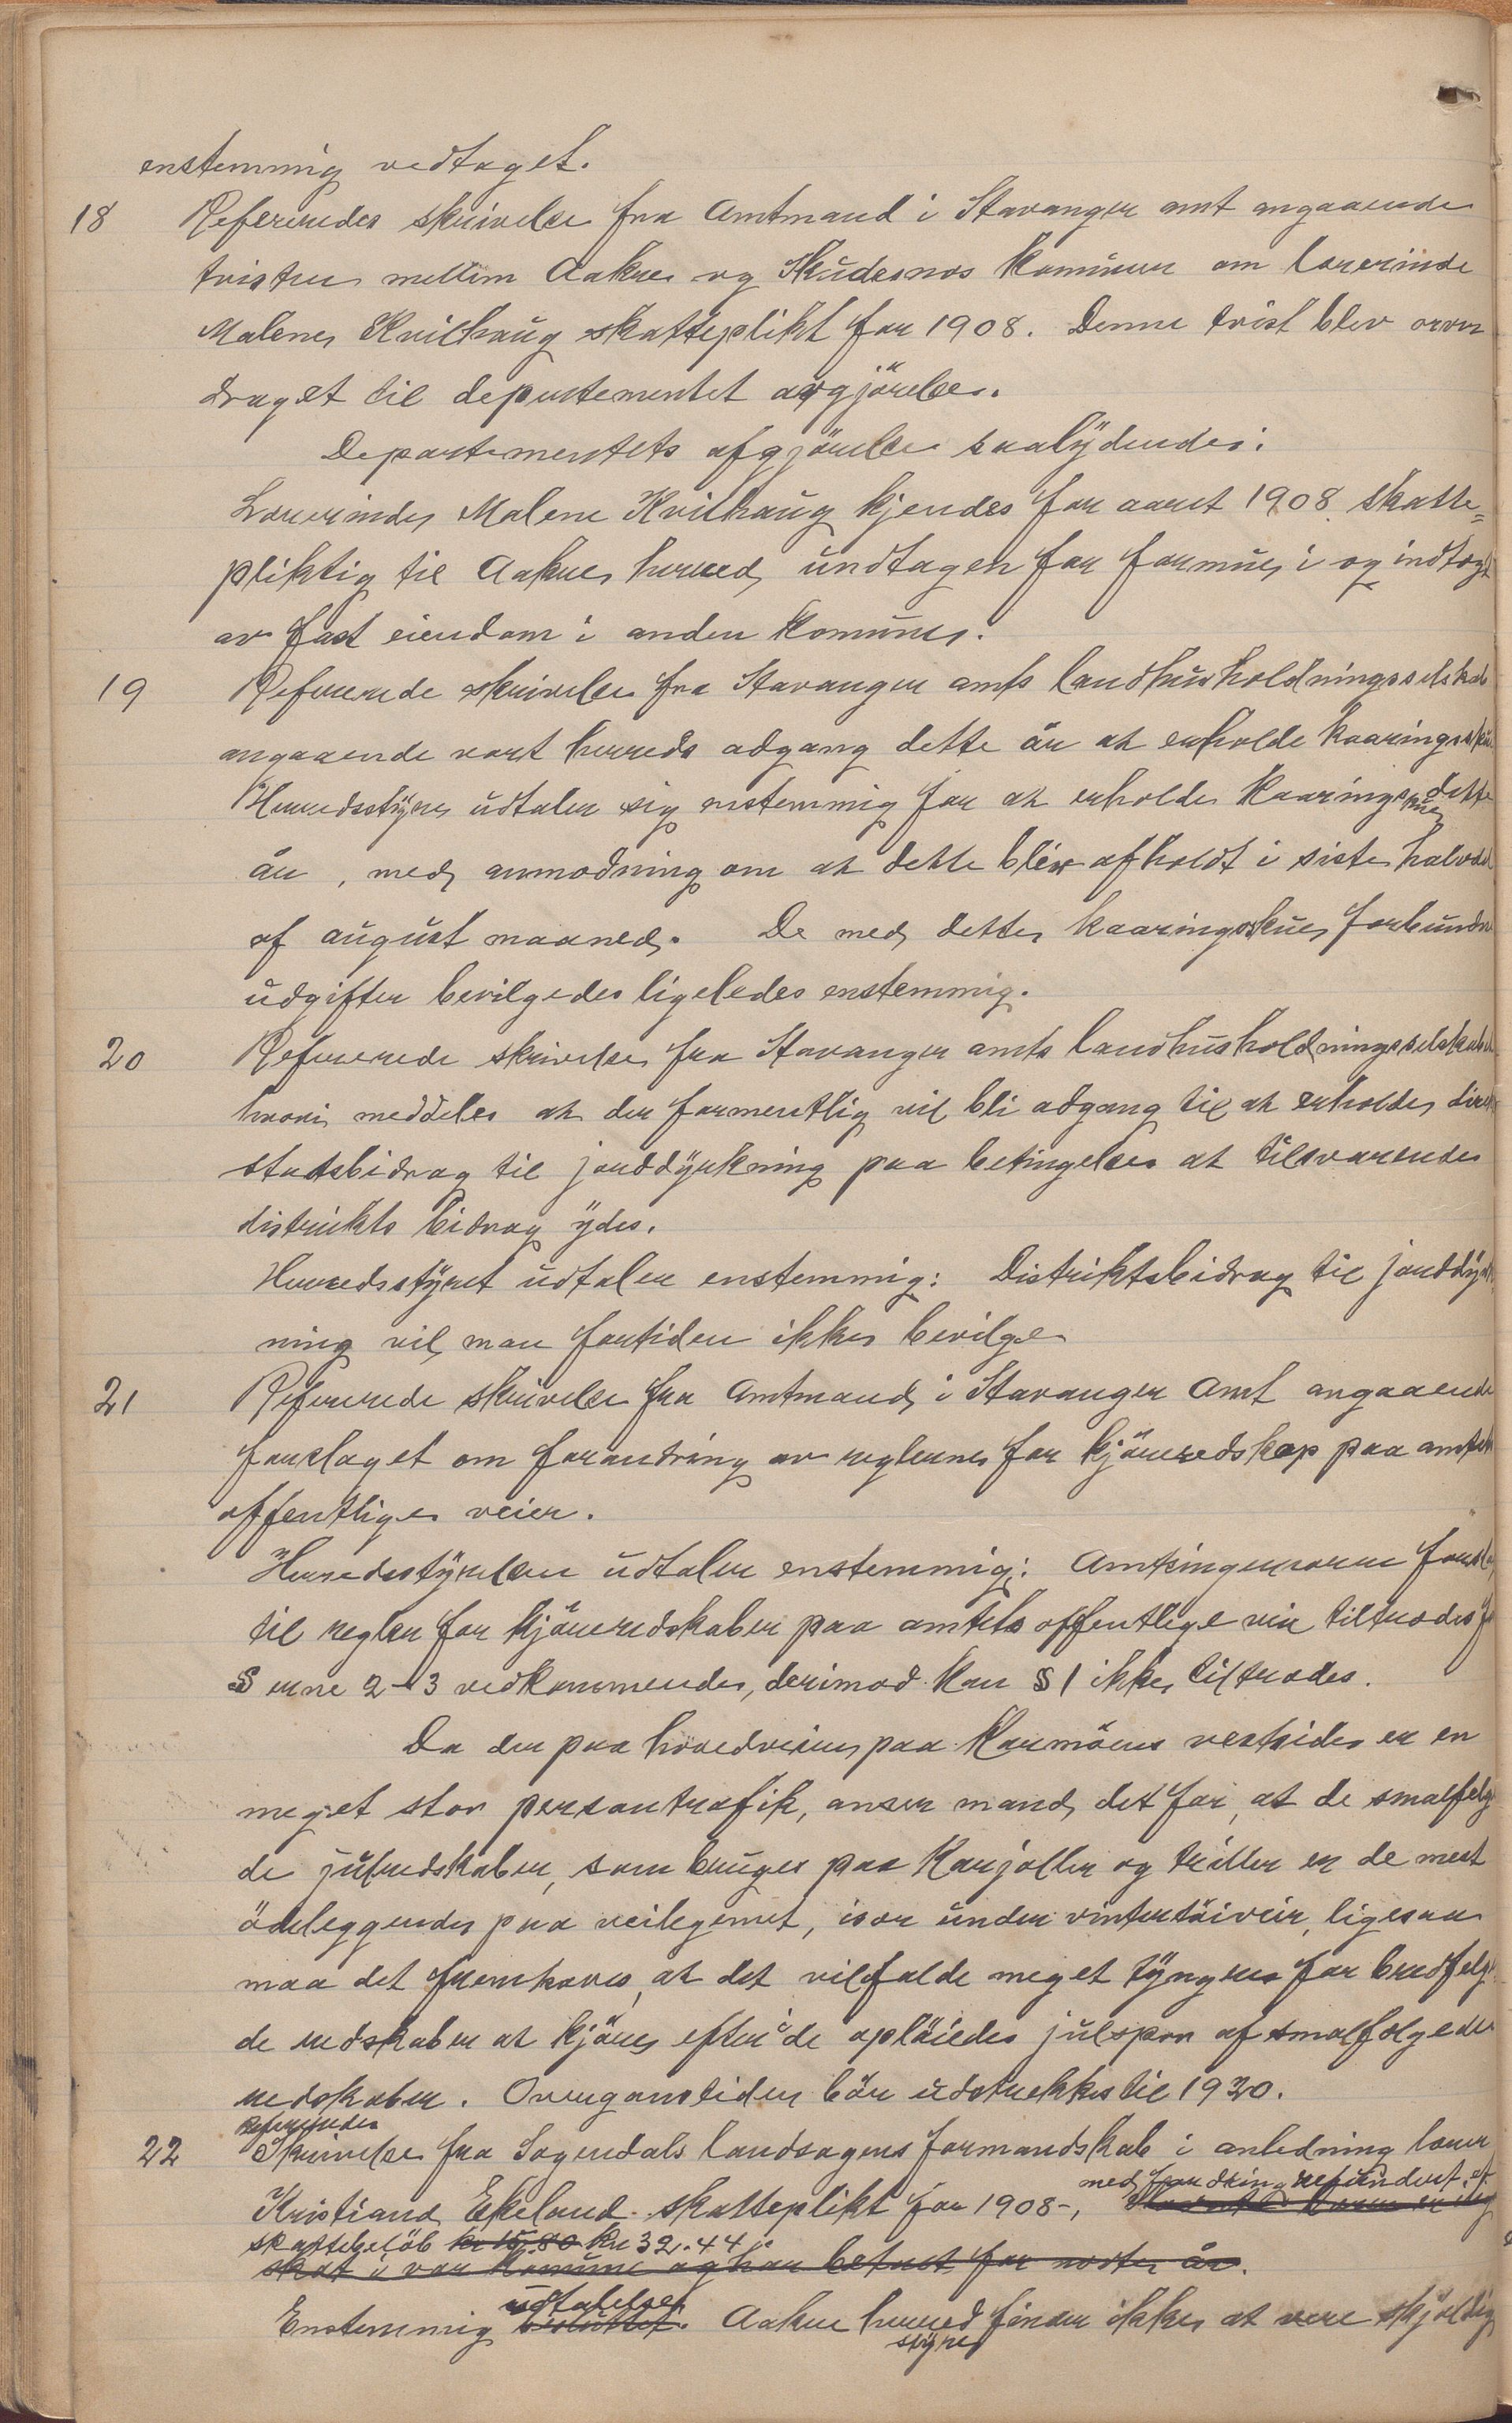 enstemmig vedtaget.
18 Refereredes skrivelse fra Amtmand i Stavanger amt angaaende
tvisten mellem Aakre og Skudesnes Komuner om lærerinde
Malene Kvilhaug skatteplikt for 1908. Denne tvist blev over
draget til departementet avgjörelse.
Departementets afgjörelse saalydende:
Lærerinde Malene Kvilhaug kjendes for aaret 1908 skatte=
pliktig til Aakre herred, undtagen for formue i og indtægt
av fast eiendom i anden Komune.
19 Refererede skrivelse fra Stavanger amts landhusholdningsselskab
angaaende vort herreds adgang dette år at erholde kaaringsskue
Herredsstyre udtaler sig enstemmig for at erholde kaaringsskue dette
år, med anmodning om at dette blir afholdt i siste halvdel
af august maaned. De med dette kaaringsskue forbundne
udgifter bevilgedes ligeledes enstemmig.
20 Refererede skrivelse fra Stavanger amts landhusholdningsselskab
hvori meddeles at der formentlig vil bli adgang til at erholde direkte
statsbidrag til jorddyrkning paa betingelse at tilsvarende
distrikts bidrag ydes.
Herredsstyret udtaler enstemmig: Distriktsbidrag til jorddyrk
ning vil man fortiden ikke bevilge
21 Refererede skrivelse fra Amtmand i Stavanger Amt angaaende
forslaget om forandring av reglerne for kjöreredskap paa amtets
offentlige veier.
Herredsstyrelsen udtaler enstemmig: Amtsingeniørens forslag
til regler for kjöreredskaber paa amtets offentlige veie tiltrædes for
§ erne 2-3 vedkommende, derimod kan § 1 ikke tiltrædes.
Da der paa hovedveien paa Karmöens vestside er en
meget stor persontrafik, anser mand det for, at de smalfelge
de julredskaber, som bruges paa Karjoller og triller er de mest
ödeleggende paa veilegemet, især under vintertöiveir, ligesaa
maa det fremhæves, at det vil falde meget tyngre for bredfelge
de redskaber at kjöre efter i de oplöiede julspor af smalfelgede
redskaber. Overganstiden bör udstrekkes til 1920.
refereredes
22 Skrivelse fra Sogendals landsogens formandskab i anledning lærer
Kristiand Ekeland skatteplikt for 1908-, med fordring refundert et
skattebelöb kr 15.80 kr 32.44
skat i vor Komune og har betalt for nøste år.
Enstemmig besluttet. udtalelse Aakre herred styre finder ikke at være skyldig